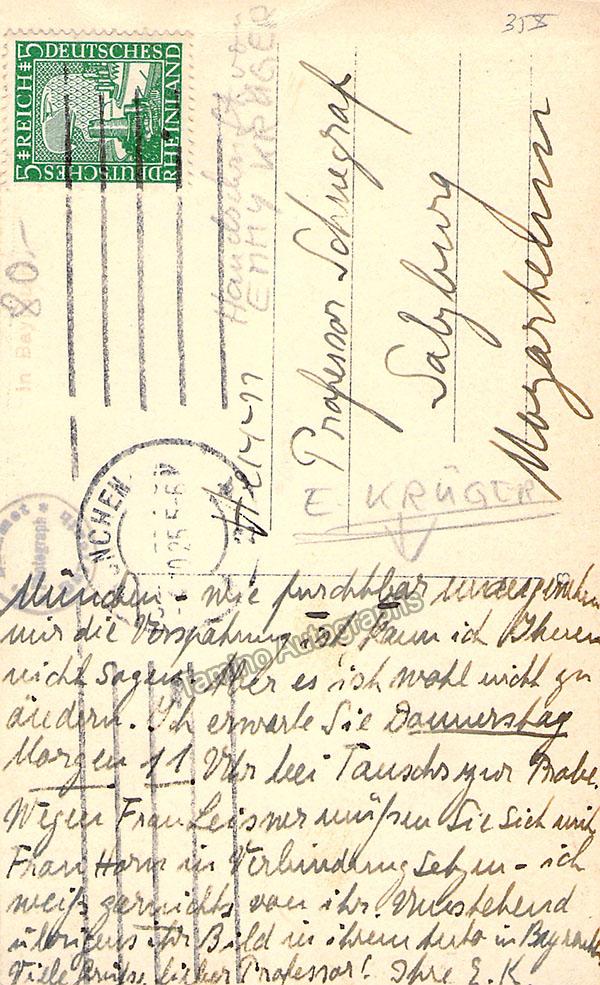 35x
5 DEUTSCHES 5
REICH
RHEINLAND
5 DEUTSCHES
Handschrift von
EMMY KRÜGER
80.-
in Bay
Professor Schnegraf
Salzburg
Mozarteum
E. KRÜGER
MÜNCHEN
10.25.5-6
Tamino Autographs
München - wie furchtbar unangenehm
mir die Verspätung ist, kann ich Ihnen
nicht sagen! Aber es ist wohl nicht zu
ändern. Ich erwarte Sie Donnerstag
Morgen 11 Uhr bei Tauschs zur Probe.
Wegen Frau Leisner müßen Sie sich mit
Frau Horn in Verbindung setzen - ich
weiß garnichts von ihr. Umstehend
übrigens ihr Bild in ihrem Auto in Bayreuth
Viele Grüße, lieber Professor! Ihre E. K.